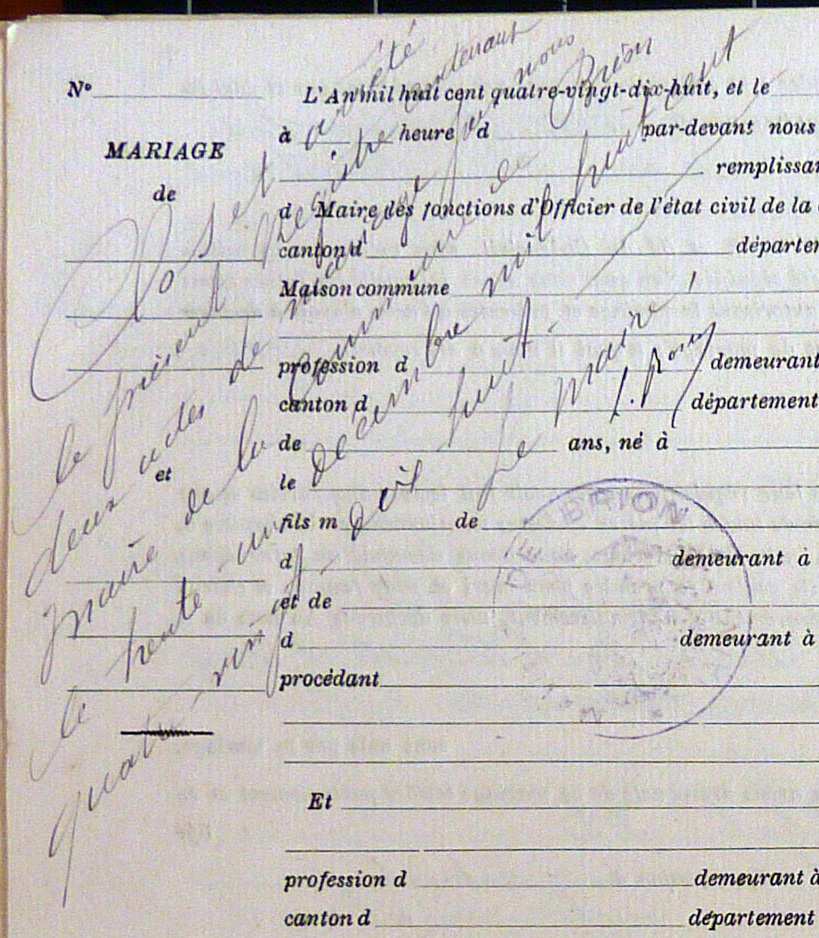 N°
MARIAGE
de
et
L'An mil huit cent quatre-vingt-dix-huit, et le
à heure d par-devant nous
remplissan
d Maire des fonctions d'Officier de l'état civil de la
canton d départem
Maison commune
profession d demeurant
canton d département
de ans, né à
le
fils m de
d demeurant à
et de
d demeurant à
procédant
Et
profession d demeurant à
canton d département
Clos et arrêté
le présent registre contenant
deux actes de mariage par nous
maire de la commune de Brion
le trente-un décembre mil huit cent
quatre-vingt-dix huit.
Le Maire,
BRION